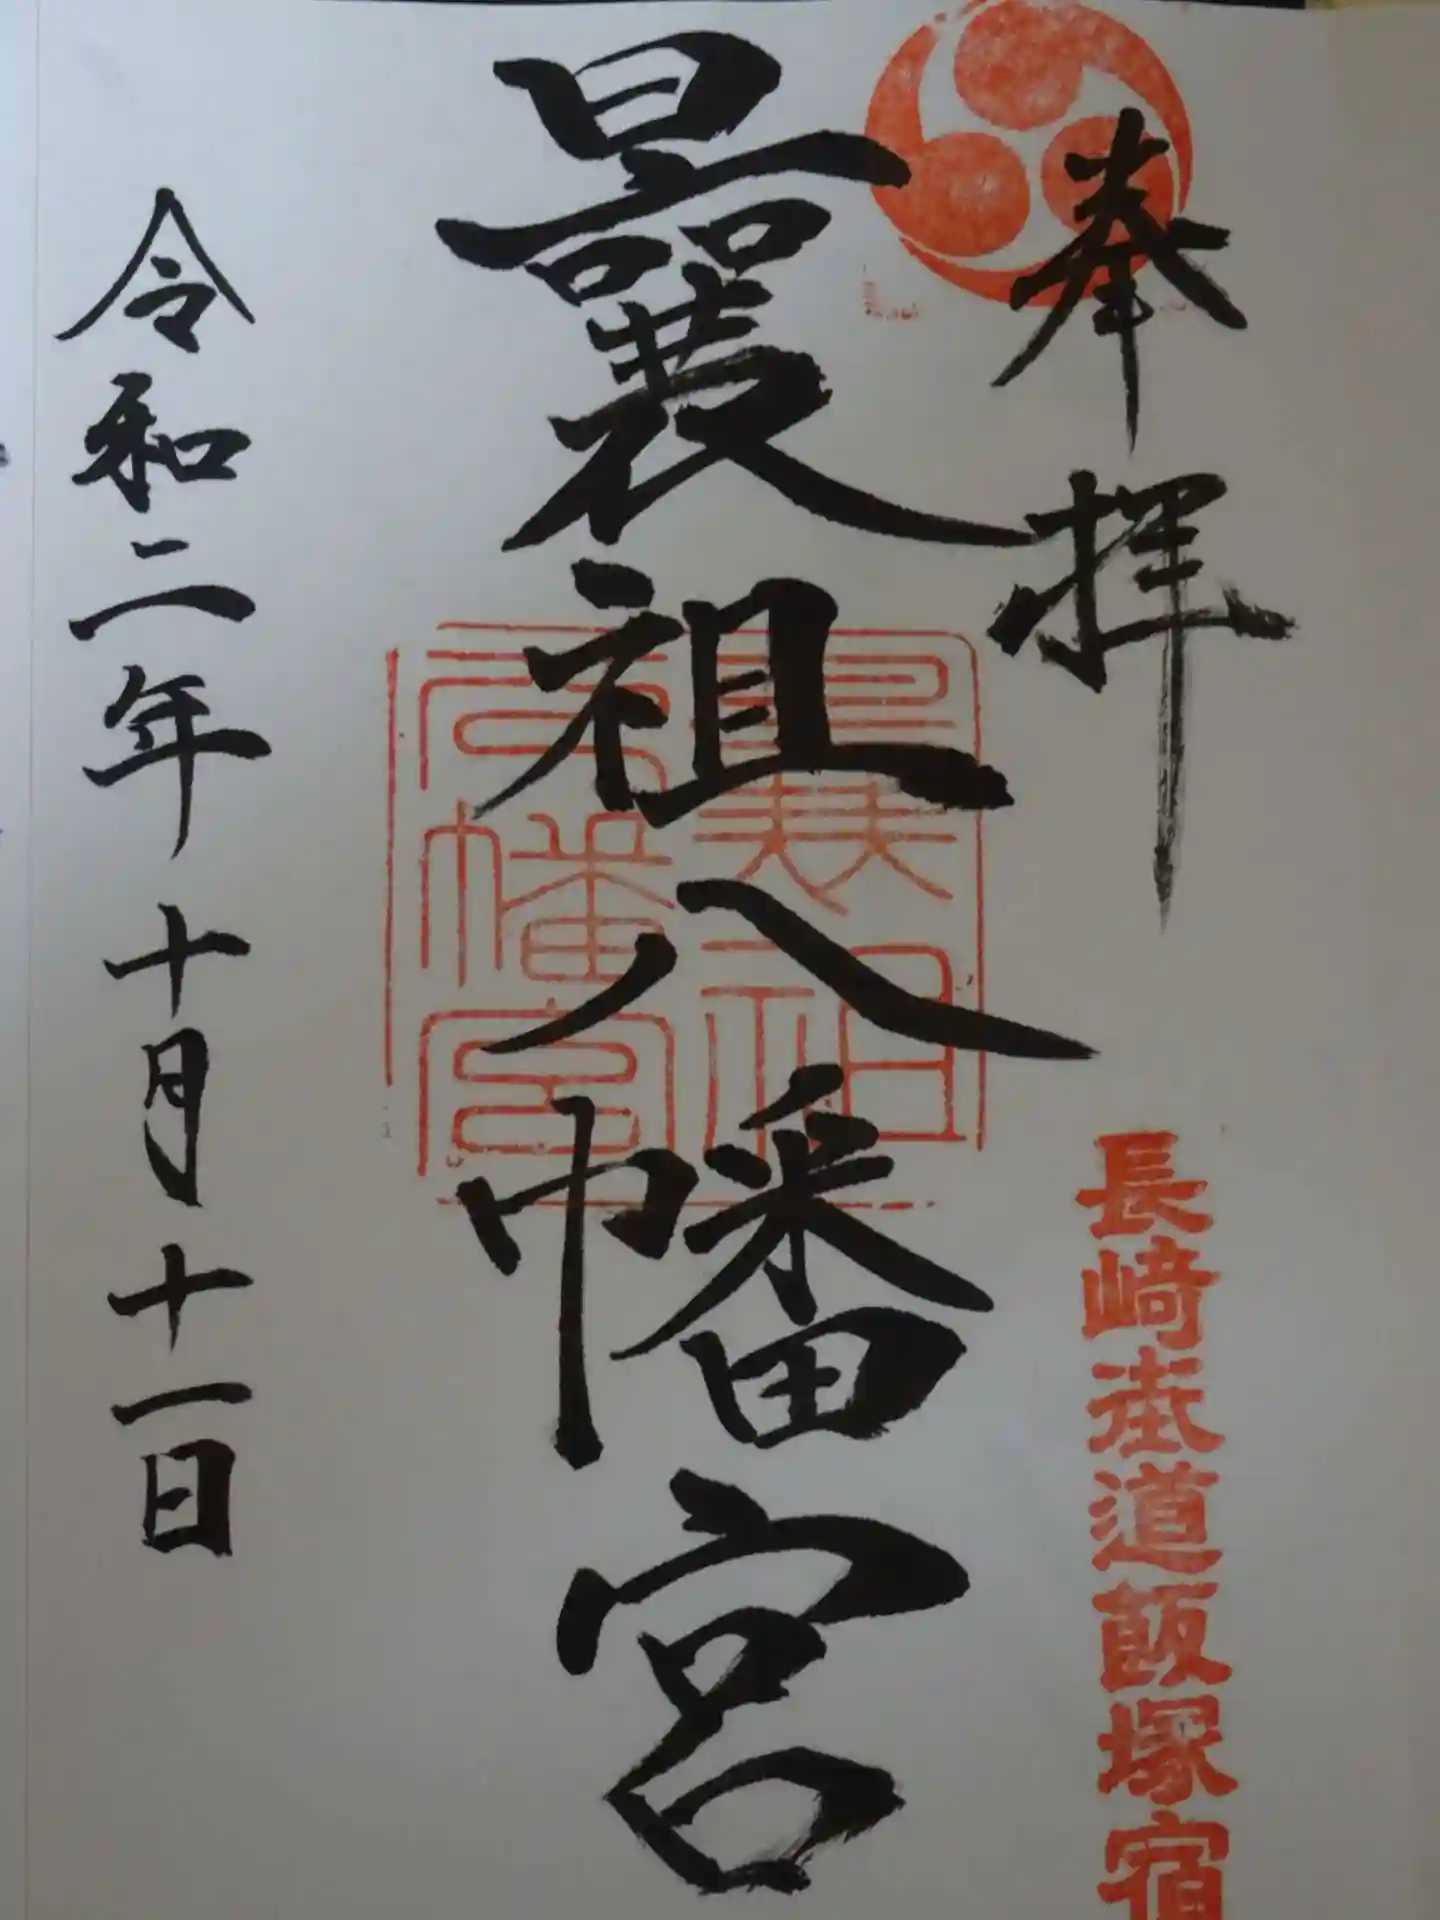 奉拝
長崎街道飯塚宿
曩祖八幡宮
曩祖
八幡宮
令和二年十月十一日